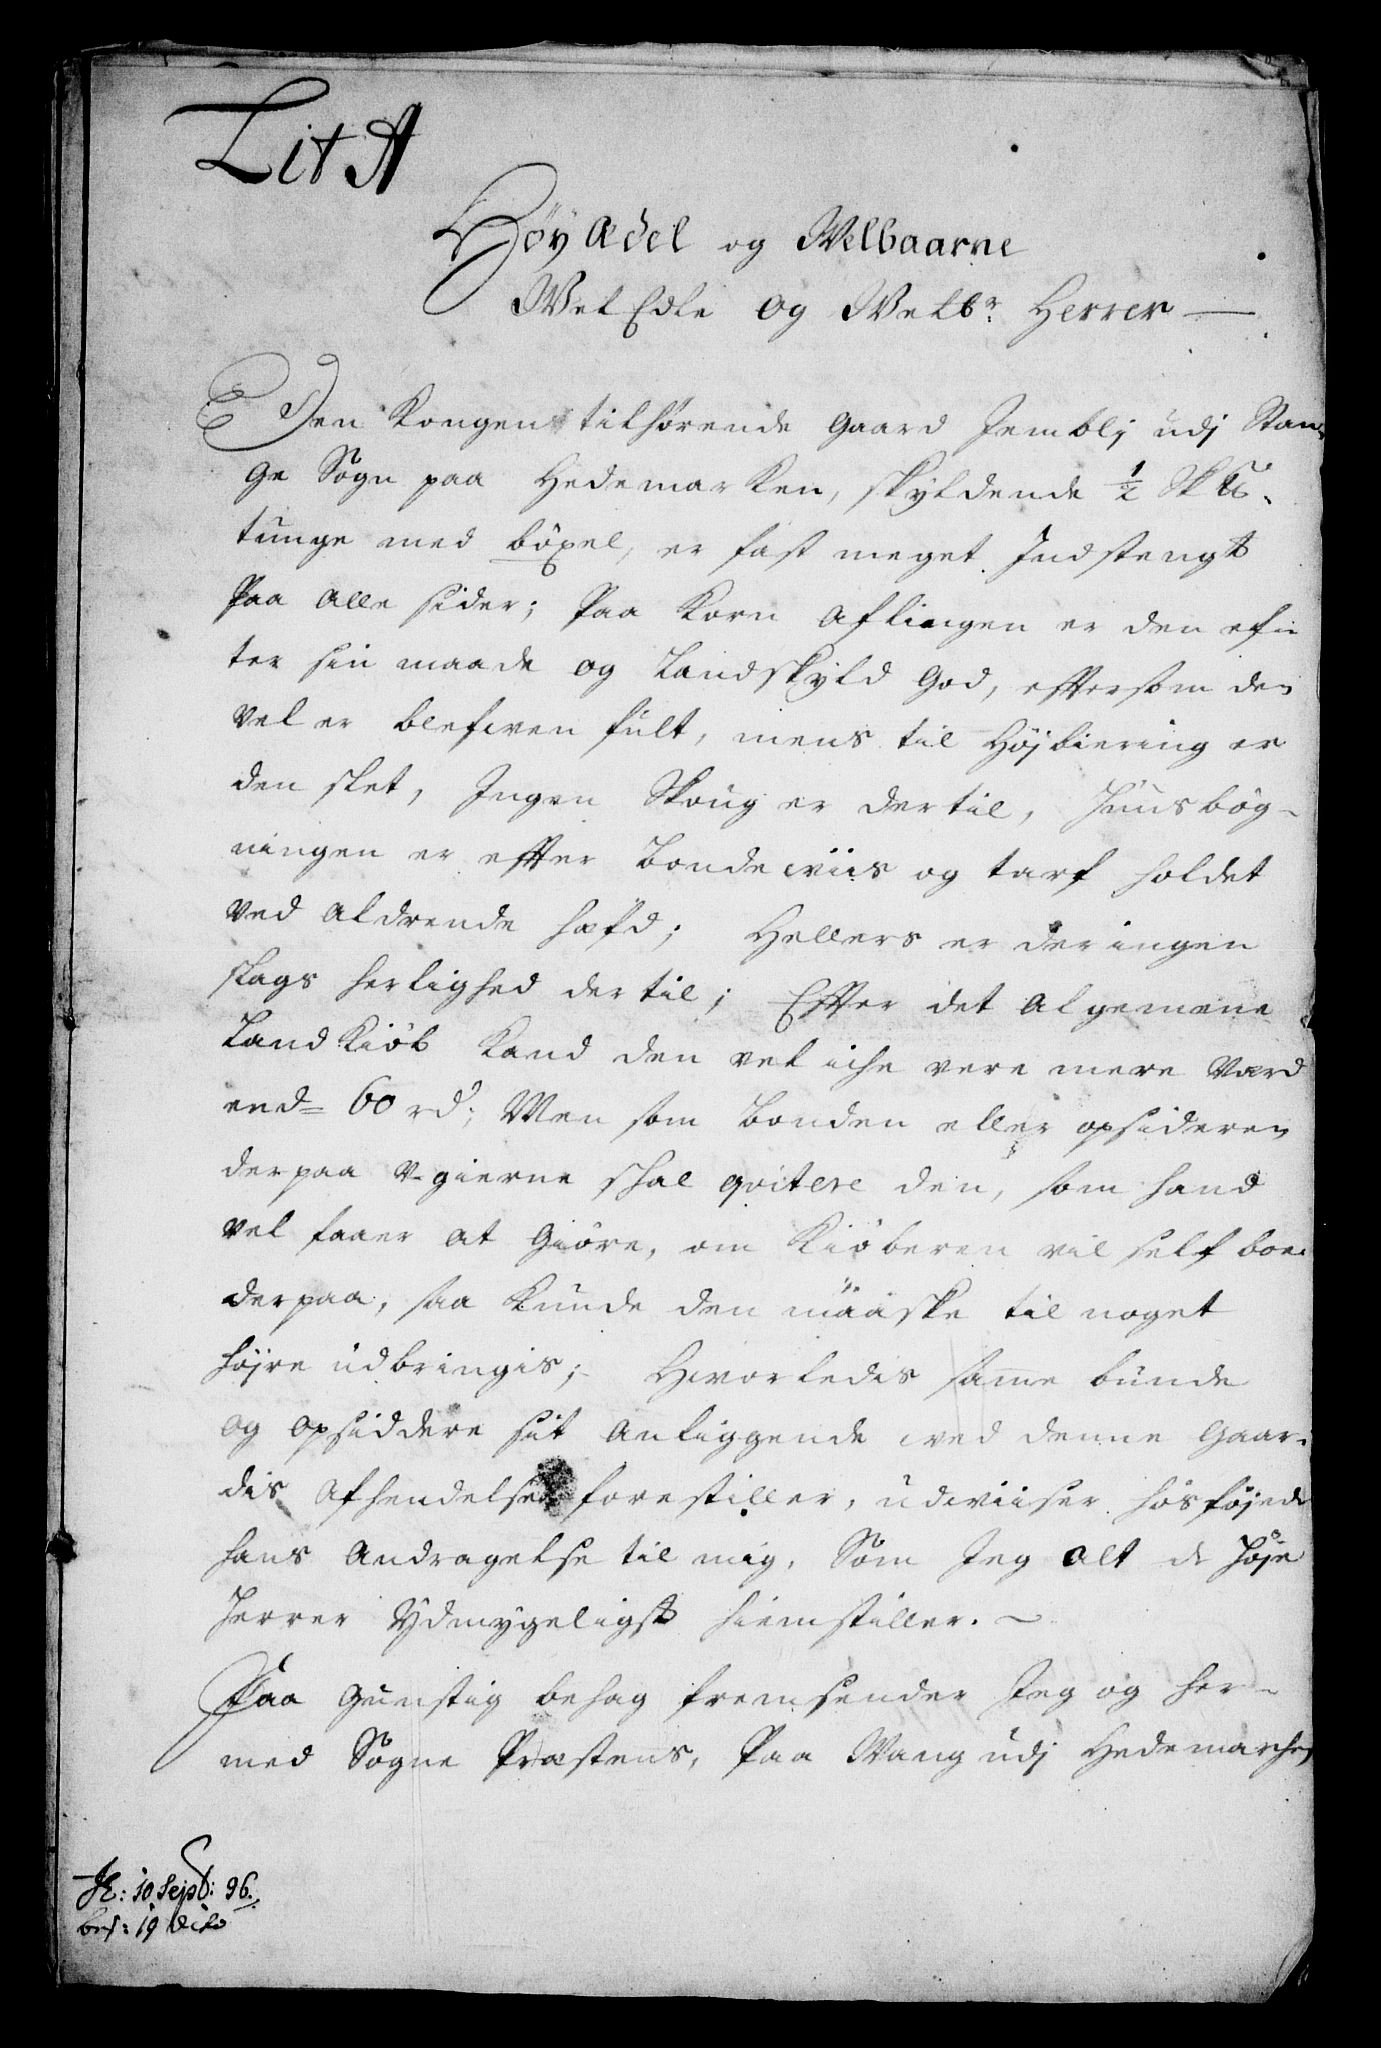 Lit A
Høy Ædel og Welbaarne
Wel Edle og Welbr. Herrer
Den Kongen tilhørende Gaard Jemblj udj Stan-
ge Sogn paa Hedemarken, skyldende ½
tunge med böxel, er fast meget Indstengt
Paa Alle sider; Paa Korn Aflingen er den ef-
ter sin maade og Landskyld God, eftersom den
vel er blefwen fult, mens til Højbiering er
den slet, Ingen Skoug er dertil, Huusbög-
ningen er effter Bonde wiis og tarf holdet
ved Aldrende hæfd; Hellers er der ingen
slags herlighed dertil; Effter det Algemene
Land Kiöb Kand den vel iche vere mere Værd
end= 60 rd; Men som Bonden eller opsideren
derpaa V-gierne skal qvitere den, som hand
vel faaer At Giöre, om Kiöberen vil self boe
derpaa, saa Kunde den maaske til noget
højre udbringis; Hvorledis samme bunde
og Opsiddere sit Anliggende wed denne Gaar-
dis Afhendelse forestiller, udwiiser hosføjede
hans Andragelse til mig, Som Jeg Alt de Høje
Herrer Ydmygeligst hiemstiller.
Paa Gunstig behag fremsender Jeg og her-
med Sogne Præstens, Paa Wang udj Hedemarchen
10 Sept: 96.
19 dito